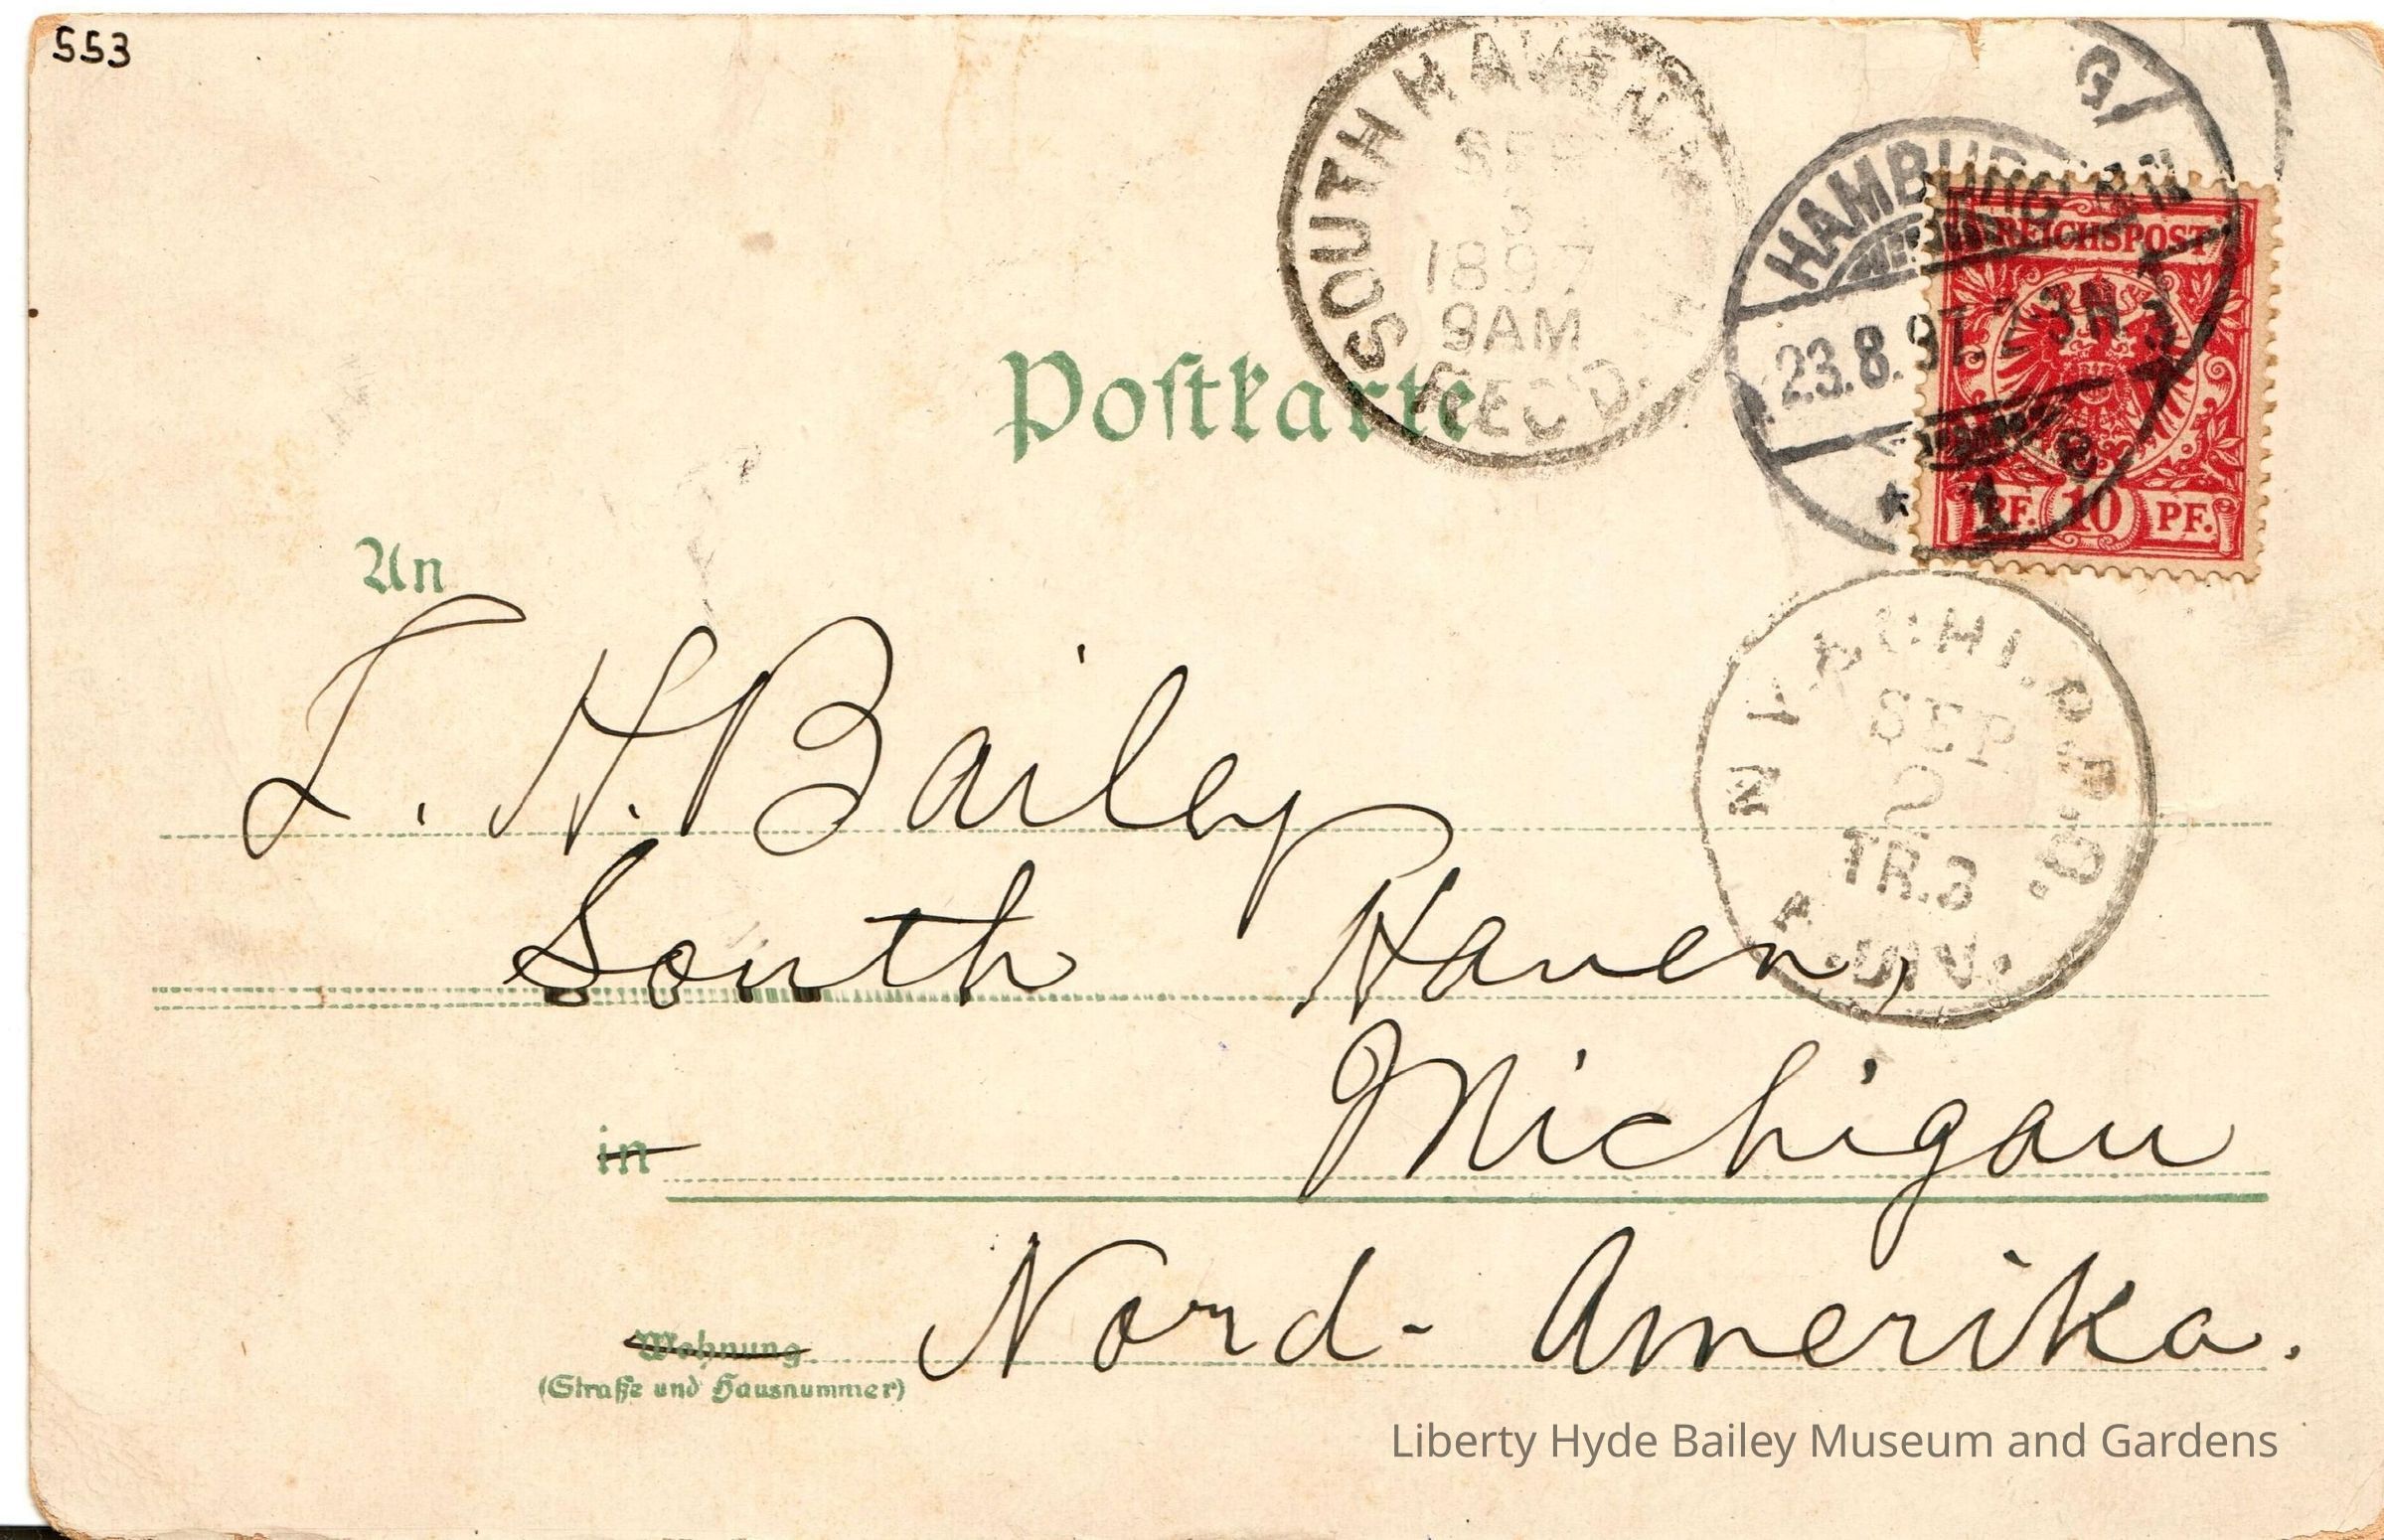 553
SOUTH HAVEN
SEP
3
1897
9AM
REC'D.
G
HAMBURG AN
23.8.97. 2-3N.
* 1
REICHSPOST
PF. 10 PF.
Poſtkarte
An
L. H. Bailey
N.Y. & CHI. R.P.O.
SEP
2
TR.3
DIV.
South Haven,
in Michigan
Wohnung Nord-Amerika.
(Straße und Hausnummer)
Liberty Hyde Bailey Museum and Gardens